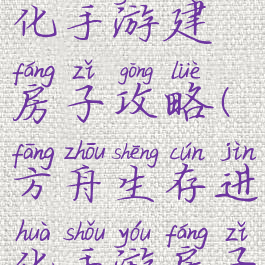 化手游建
fáng zǐ gōng lüè
房子攻略(
fāng zhōu shēng cún jìn
方舟生存进
huà shǒu yóu fáng zǐ
化手游房子